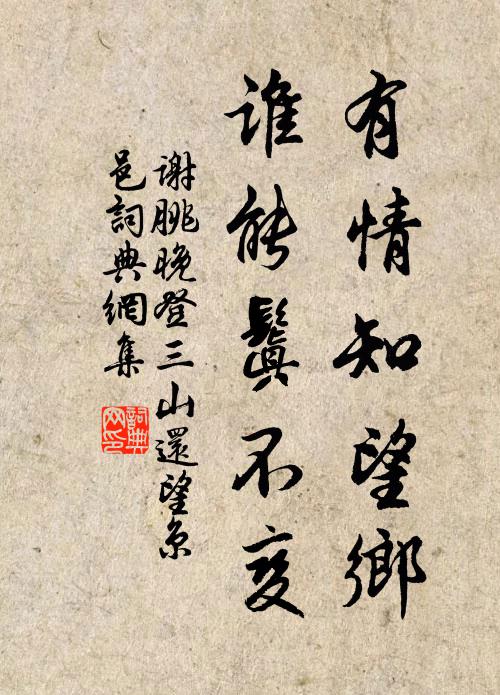 有情知望鄉
谁能鬒不变
谢朓晚登三山還望京
邑詞典網集
詞典
网印